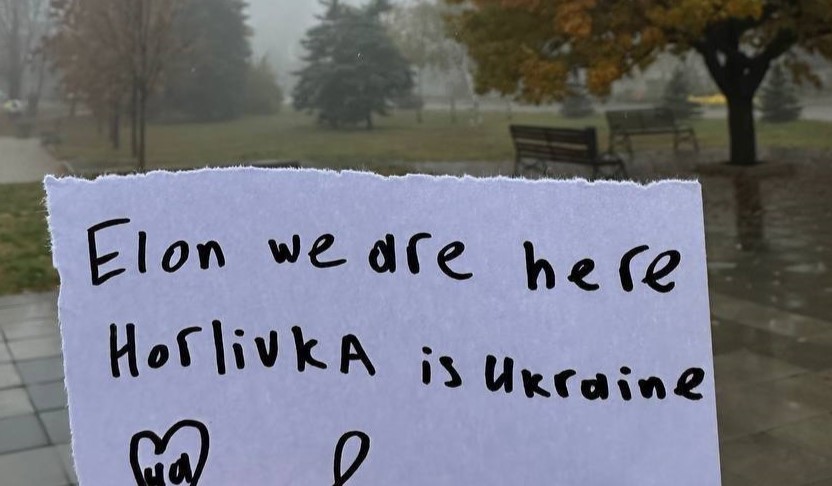 Elon we are here
HorlivkA is Ukraine
ua